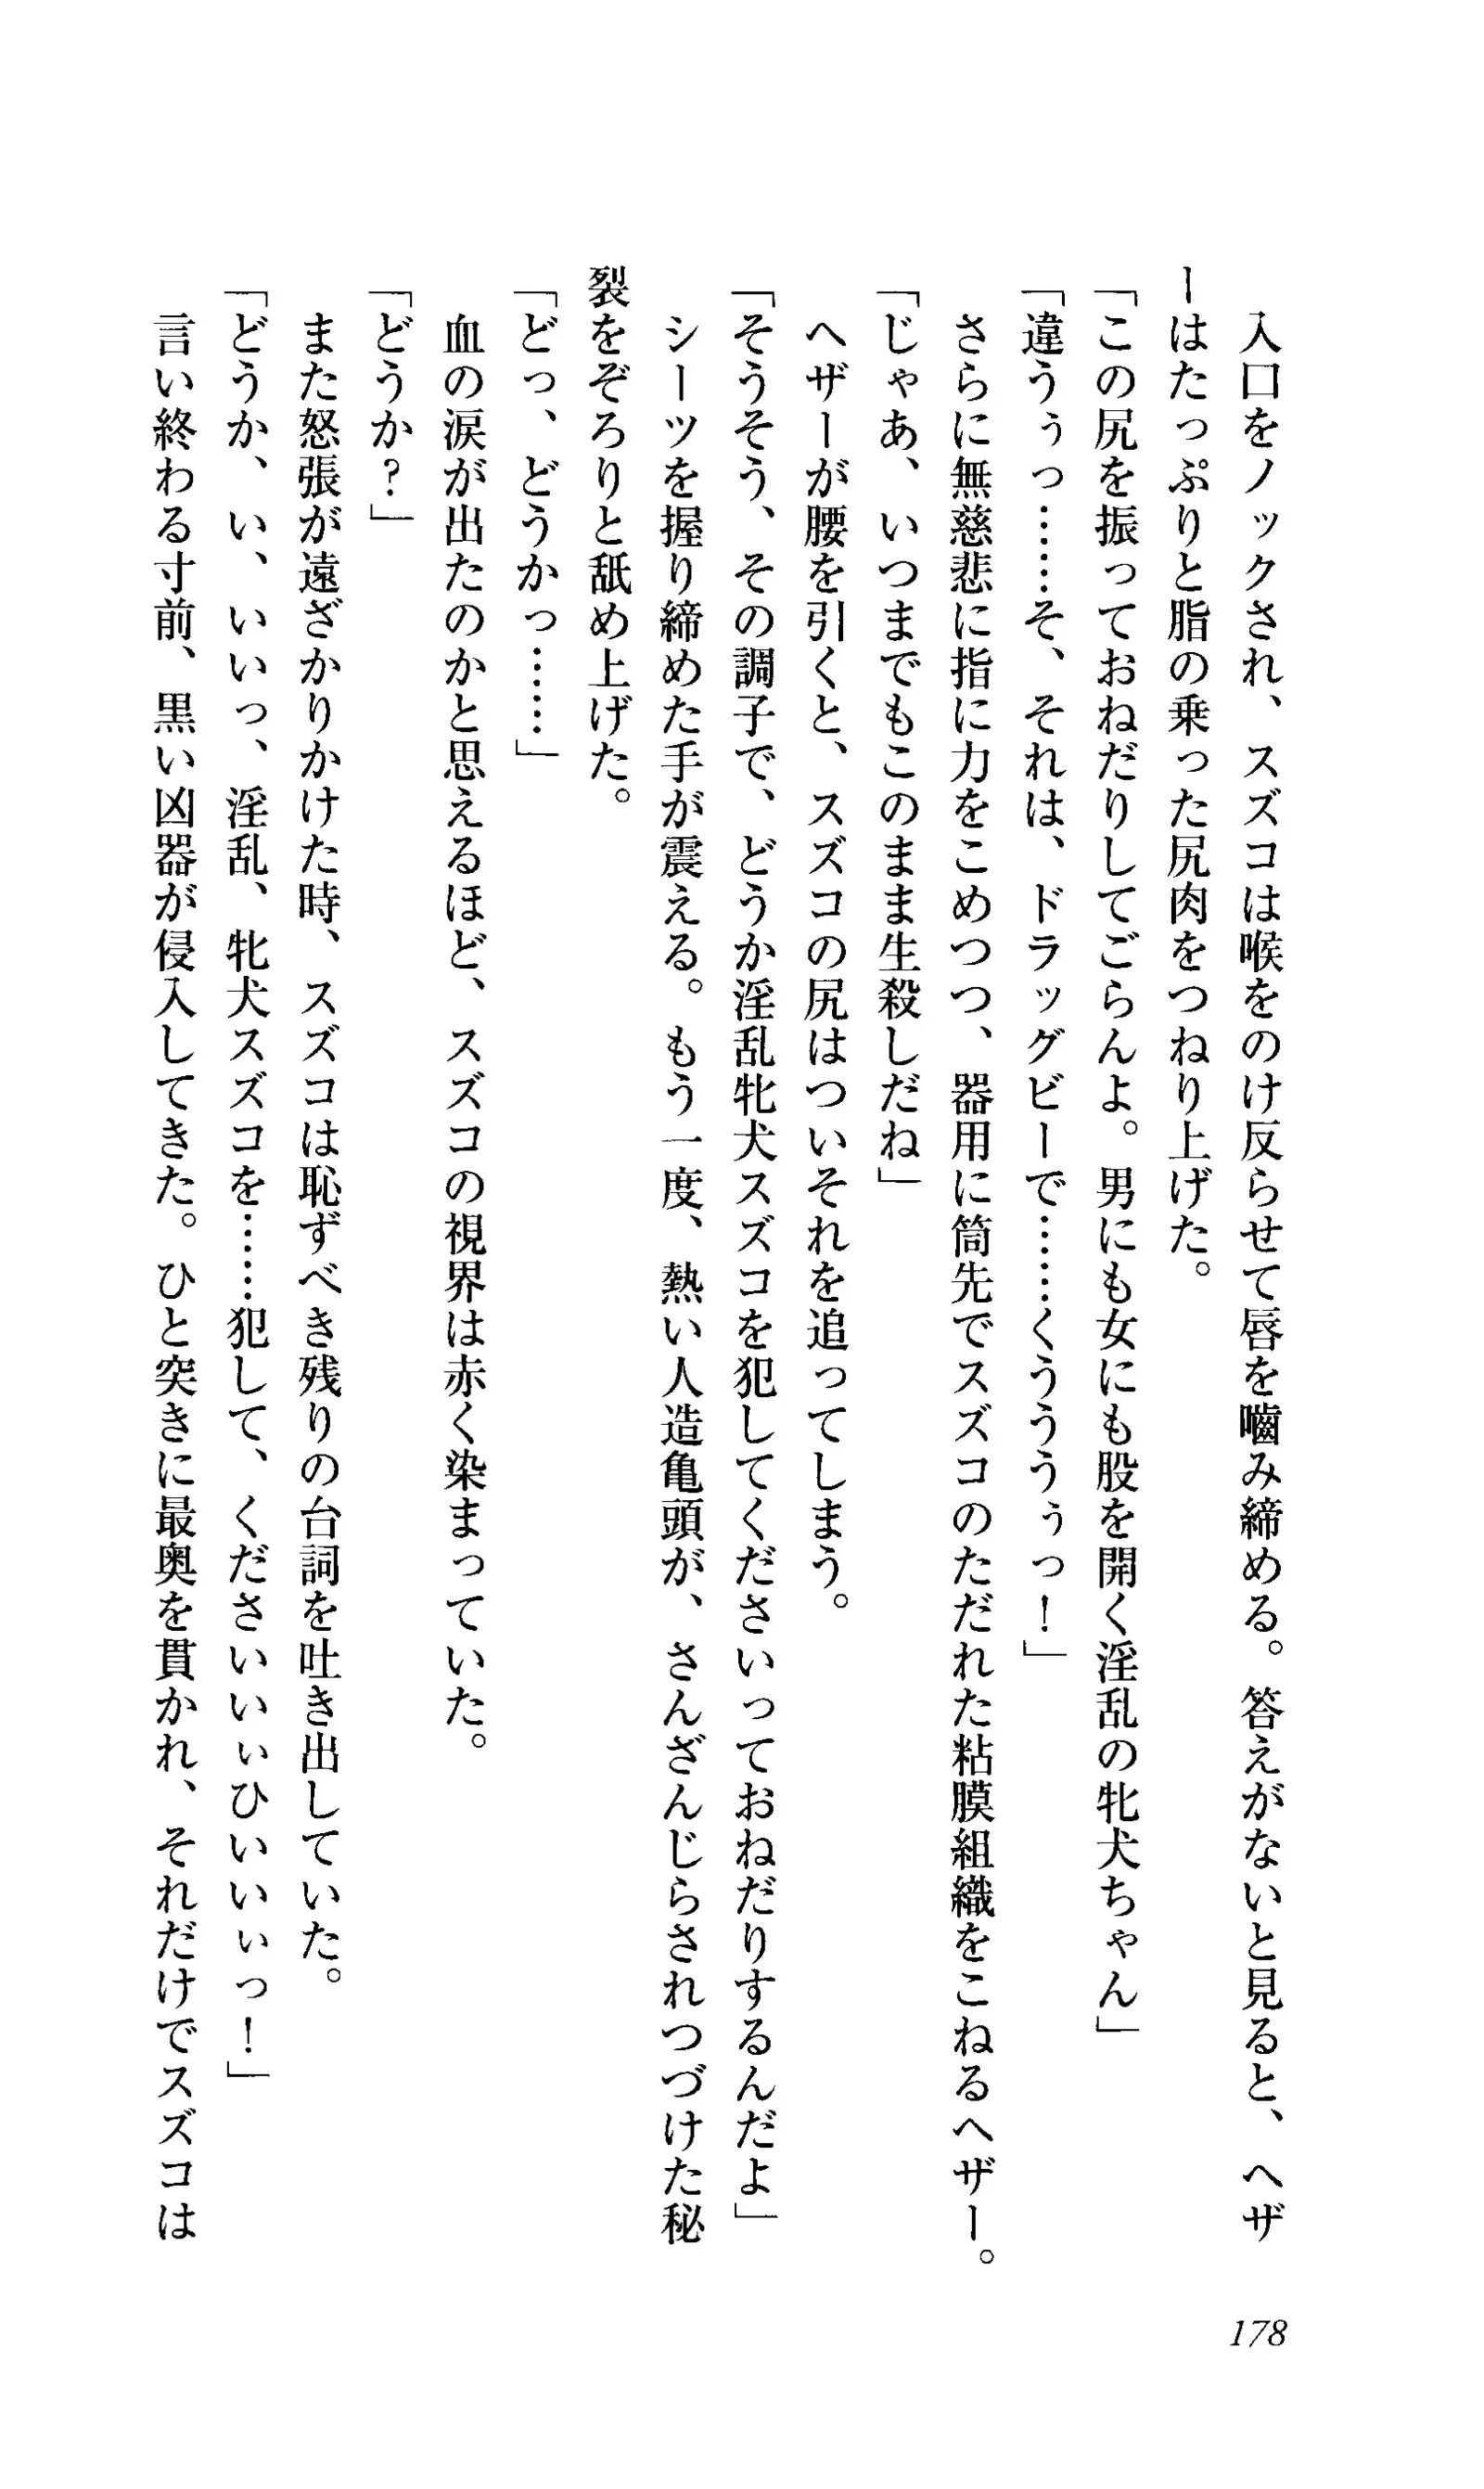 入口をノックされ、スズコは喉をのけ反らせて唇を嚙み締める。答えがないと見ると、ヘザ
ーはたっぷりと脂の乗った尻肉をつねり上げた。
「この尻を振っておねだりしてごらんよ。男にも女にも股を開く淫乱の牝犬ちゃん」
「違うぅっ……そ、それは、ドラッグビーで……くうううぅっ！」
さらに無慈悲に指に力をこめつつ、器用に筒先でスズコのただれた粘膜組織をこねるヘザー。
「じゃあ、いつまでもこのまま生殺しだね」
ヘザーが腰を引くと、スズコの尻はついそれを追ってしまう。
「そうそう、その調子で、どうか淫乱牝犬スズコを犯してくださいっておねだりするんだよ」
シーツを握り締めた手が震える。もう一度、熱い人造亀頭が、さんざんじらされつづけた秘
裂をぞろりと舐め上げた。
「どっ、どうかっ……」
血の涙が出たのかと思えるほど、スズコの視界は赤く染まっていた。
「どうか？」
また怒張が遠ざかりかけた時、スズコは恥ずべき残りの台詞を吐き出していた。
「どうか、い、いいっ、淫乱、牝犬スズコを……犯して、くださいいぃひいいぃっ！」
言い終わる寸前、黒い凶器が侵入してきた。ひと突きに最奥を貫かれ、それだけでスズコは
178